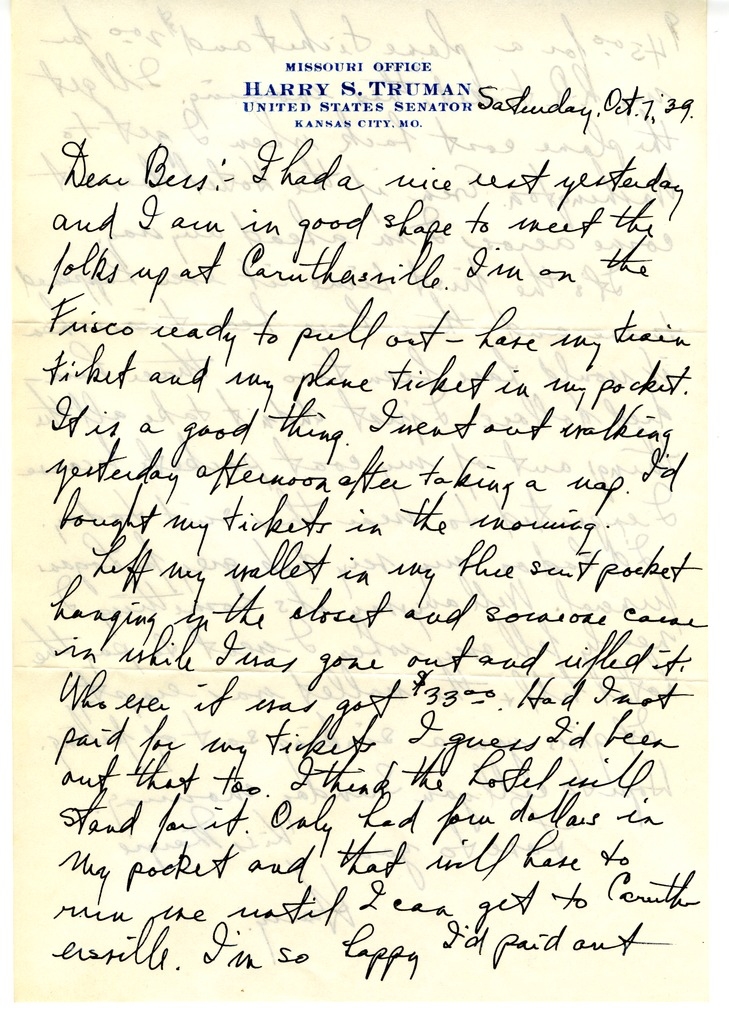 MISSOURI OFFICE
HARRY S. TRUMAN
UNITED STATES SENATOR
KANSAS CITY, MO.
Saturday, Oct. 7, 39.
Dear Bess:- I had a nice rest yesterday
and I am in good shape to meet the
folks up at Caruthersville. I'm on the
Frisco ready to pull out - have my train
ticket and my plane ticket in my pocket.
It is a good thing. I went out walking
yesterday afternoon after taking a nap. I'd
bought my tickets in the morning.
Left my wallet in my blue suit pocket
hanging in the closet and someone came
in while I was gone out and rifled it.
Who ever it was got $33.00. Had I not
paid for my tickets I guess I'd been
out that too. I think the hotel will
stand for it. Only had four dollars in
my pocket and that will have to
run me until I can get to Caruth
ersville. I'm so happy I'd paid out